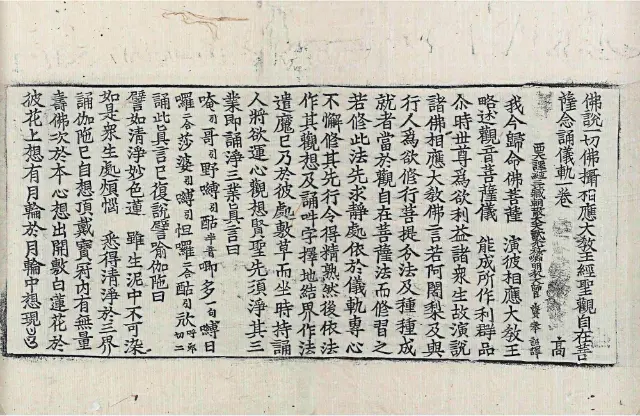 佛說一切佛攝相應大教王經聖觀自在菩
薩念誦儀軌一卷 高
西天譯經三藏朝散大夫 奉 詔譯
我今歸命佛菩薩 演彼相應大教王
略述觀音菩薩儀 能成所作利群品
尒時世尊為欲利益諸衆生故演說
諸佛相應大教佛言若阿闍梨及與
行人為欲修行菩提分法及種種成
就者當於觀自在菩薩法而修習之
若修此法先求静處依於儀軌專心
不懈修其先行令得精熟然後依法
作其觀想及誦吽字擇地結界作法
遣魔已乃於彼處敷草而坐時持誦
人將欲運心觀想賢聖先須淨其三
業即誦淨三業真言曰
唵引哥引野嚩引酤半音唧多一句嚩日
囉二合莎婆引嚩引怛囉二合酤引欣
誦此真言已復說譬喻伽陁曰
譬如清淨妙色蓮 雖生泥中不可染
如是衆生處煩惱 悉得清淨於三界
誦伽陁已自想頂戴寶冠內有無量
壽佛次於本心想出開敷白蓮花於
彼花上想有月輪於月輪中想現